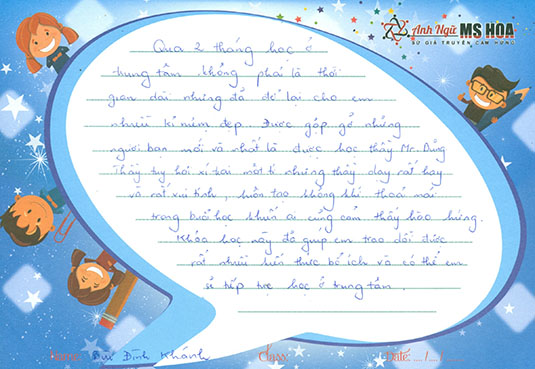 Anh Ngữ MS HOA
SỨ GIẢ TRUYỀN CẢM HỨNG
Qua 2 tháng học ở
trung tâm không phải là thời
gian dài nhưng đã để lại cho em
nhiều kỉ niệm đẹp. Được gặp gỡ những
người bạn mới và nhất là được học thầy Mr. Dũng
Thầy tuy hơi xì tai một tí nhưng thầy dạy rất hay
và rất vui tính, luôn tạo không khí thoải mái
trong buổi học khiến ai cũng cảm thấy hào hứng.
Khóa học này đã giúp em trao dồi được
rất nhiều kiến thức bổ ích và có thể em
sẽ tiếp tục học ở trung tâm.
Name: Bùi Đình Khánh Class: Date: .../.../...